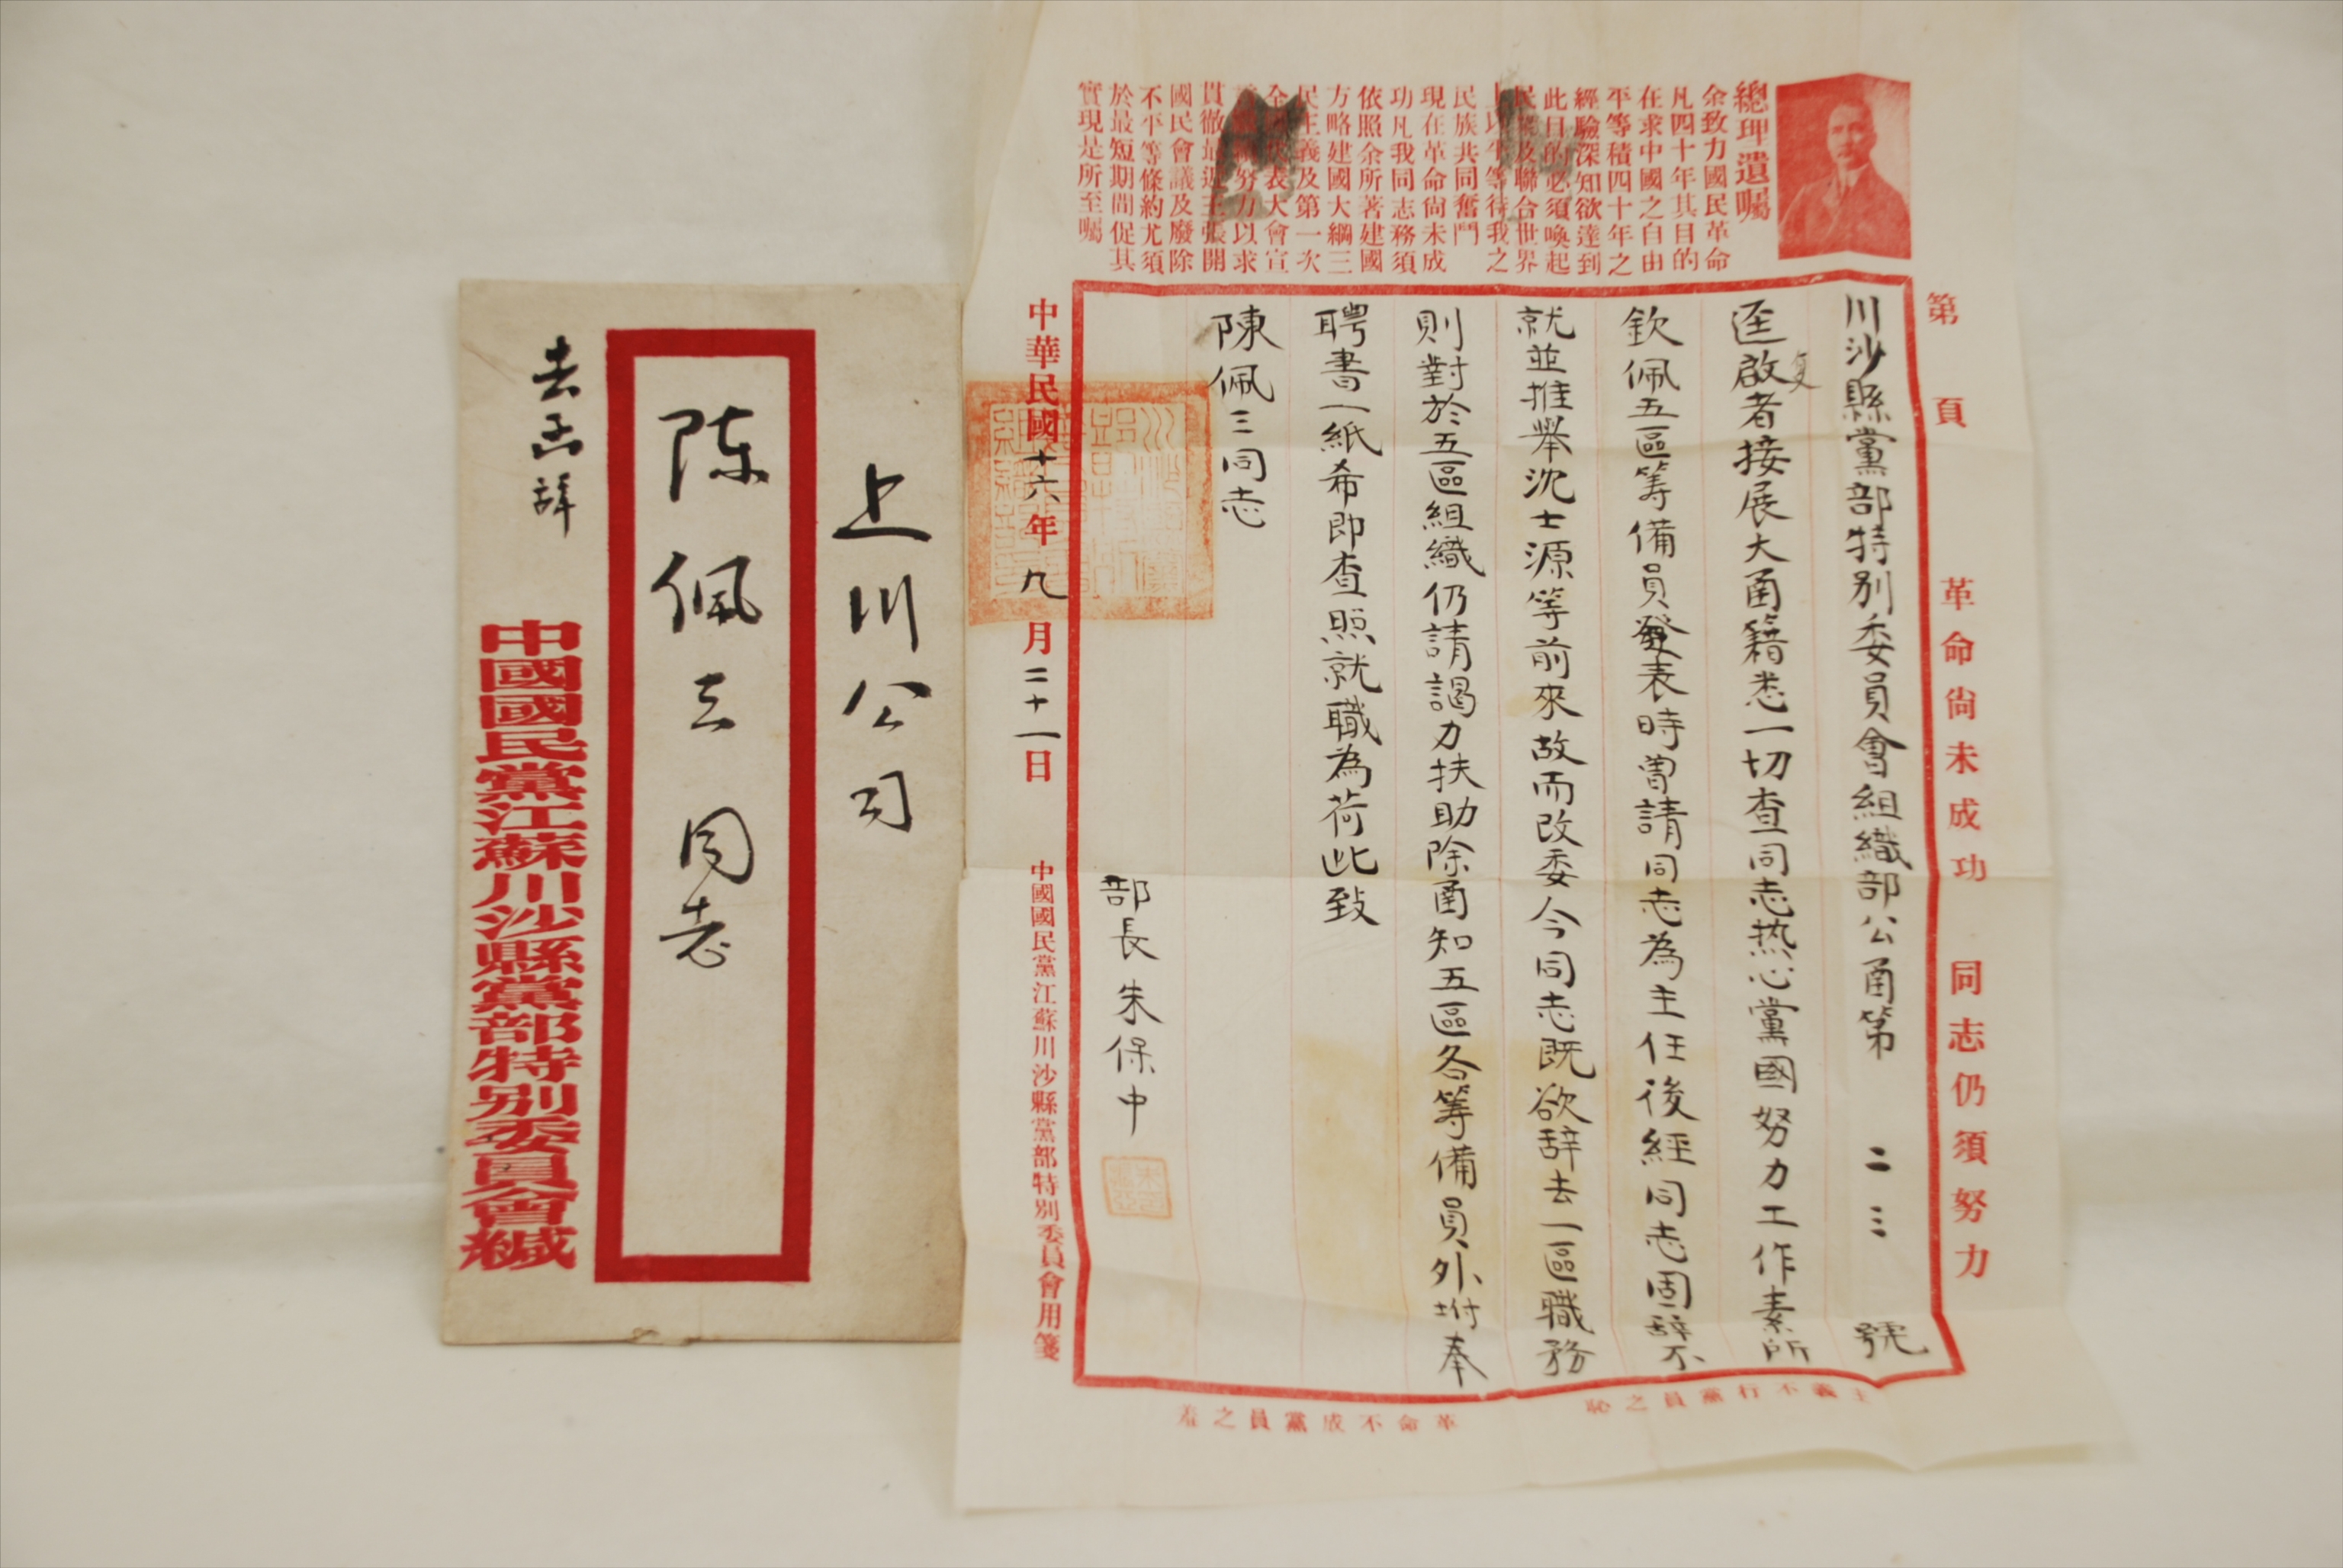 上川公司
陈佩三同志
去函辞
中國國民黨江蘇川沙縣黨部特别委員會緘
總理遺囑
余致力國民革命
凡四十年其目的
在求中國之自由
平等積四十年之
經驗深知欲達到
此目的必須喚起
民及聯合世界
以平等待我之
民族共同奮鬥
現在革命尙未成
功凡我同志務須
依照余所著建國
方略建國大綱三
民主義及第一次
全表大會宣
努力以求
貫徹最近主張開
國民會議及廢除
不平等條約尤須
於最短期間促其
實現是所至囑
第 頁
革命尙未成功 同志仍須努力
川沙縣黨部特别委員會組織部公函第 二三 號
逕啟者接展大函籍悉一切查同志热心黨國努力工作素所
复
欽佩五區筹備員發表時曾請同志為主任後經同志固辞不
就並推舉沈士源等前來故而改委今同志既欲辞去一區職務
則對於五區組織仍請謁力扶助除函知五區各筹備員外坿奉
聘書一紙希即查照就職為荷此致
陳佩三同志
部長朱保中
中華民國十六年九月二十一日
中國國民黨江蘇川沙縣黨部特别委員會用箋
主義不行黨員之恥
革命不成黨員之羞